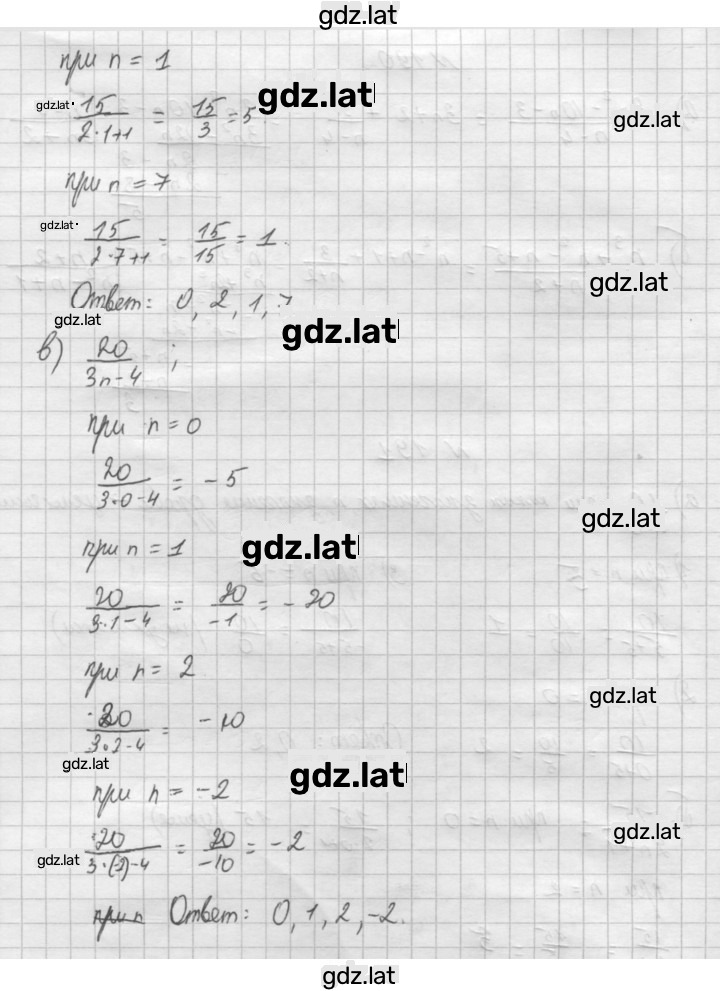 gdz.lat
при n = 1
gdz.lat 15/(2·1+1) = 15/3 = 5 gdz.lat gdz.lat
при n = 7
gdz.lat 15/(2·7+1) = 15/15 = 1.
gdz.lat
Ответ: 0, 2, 1, 7
gdz.lat gdz.lat
в) 20/(3n-4) ;
при n = 0
20/(3·0-4) = -5
gdz.lat
при n = 1 gdz.lat
20/(3·1-4) = 20/-1 = -20
при n = 2
gdz.lat
20/(3·2-4) = -10
gdz.lat gdz.lat
при n = -2
gdz.lat
gdz.lat 20/(3·(-2)-4) = 20/-10 = -2
Ответ: 0, 1, 2, -2.
gdz.lat